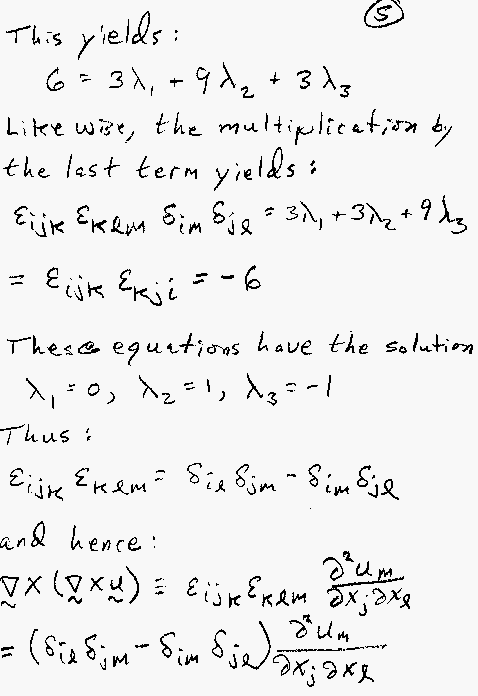 ⑤
This yields:
6 = 3λ₁ + 9λ₂ + 3λ₃
Likewise, the multiplication by
the last term yields:
εᵢⱼₖ εₖₗₘ δᵢₘ δⱼₗ = 3λ₁ + 3λ₂ + 9λ₃
= εᵢⱼₖ εₖⱼᵢ = -6
These equations have the solution
λ₁ = 0, λ₂ = 1, λ₃ = -1
Thus:
εᵢⱼₖ εₖₗₘ = δᵢₗ δⱼₘ - δᵢₘ δⱼₗ
and hence:
∇ × (∇ × u) ≡ εᵢⱼₖ εₖₗₘ ∂²uₘ/∂xⱼ∂xₗ
= (δᵢₗ δⱼₘ - δᵢₘ δⱼₗ) ∂²uₘ/∂xⱼ∂xₗ